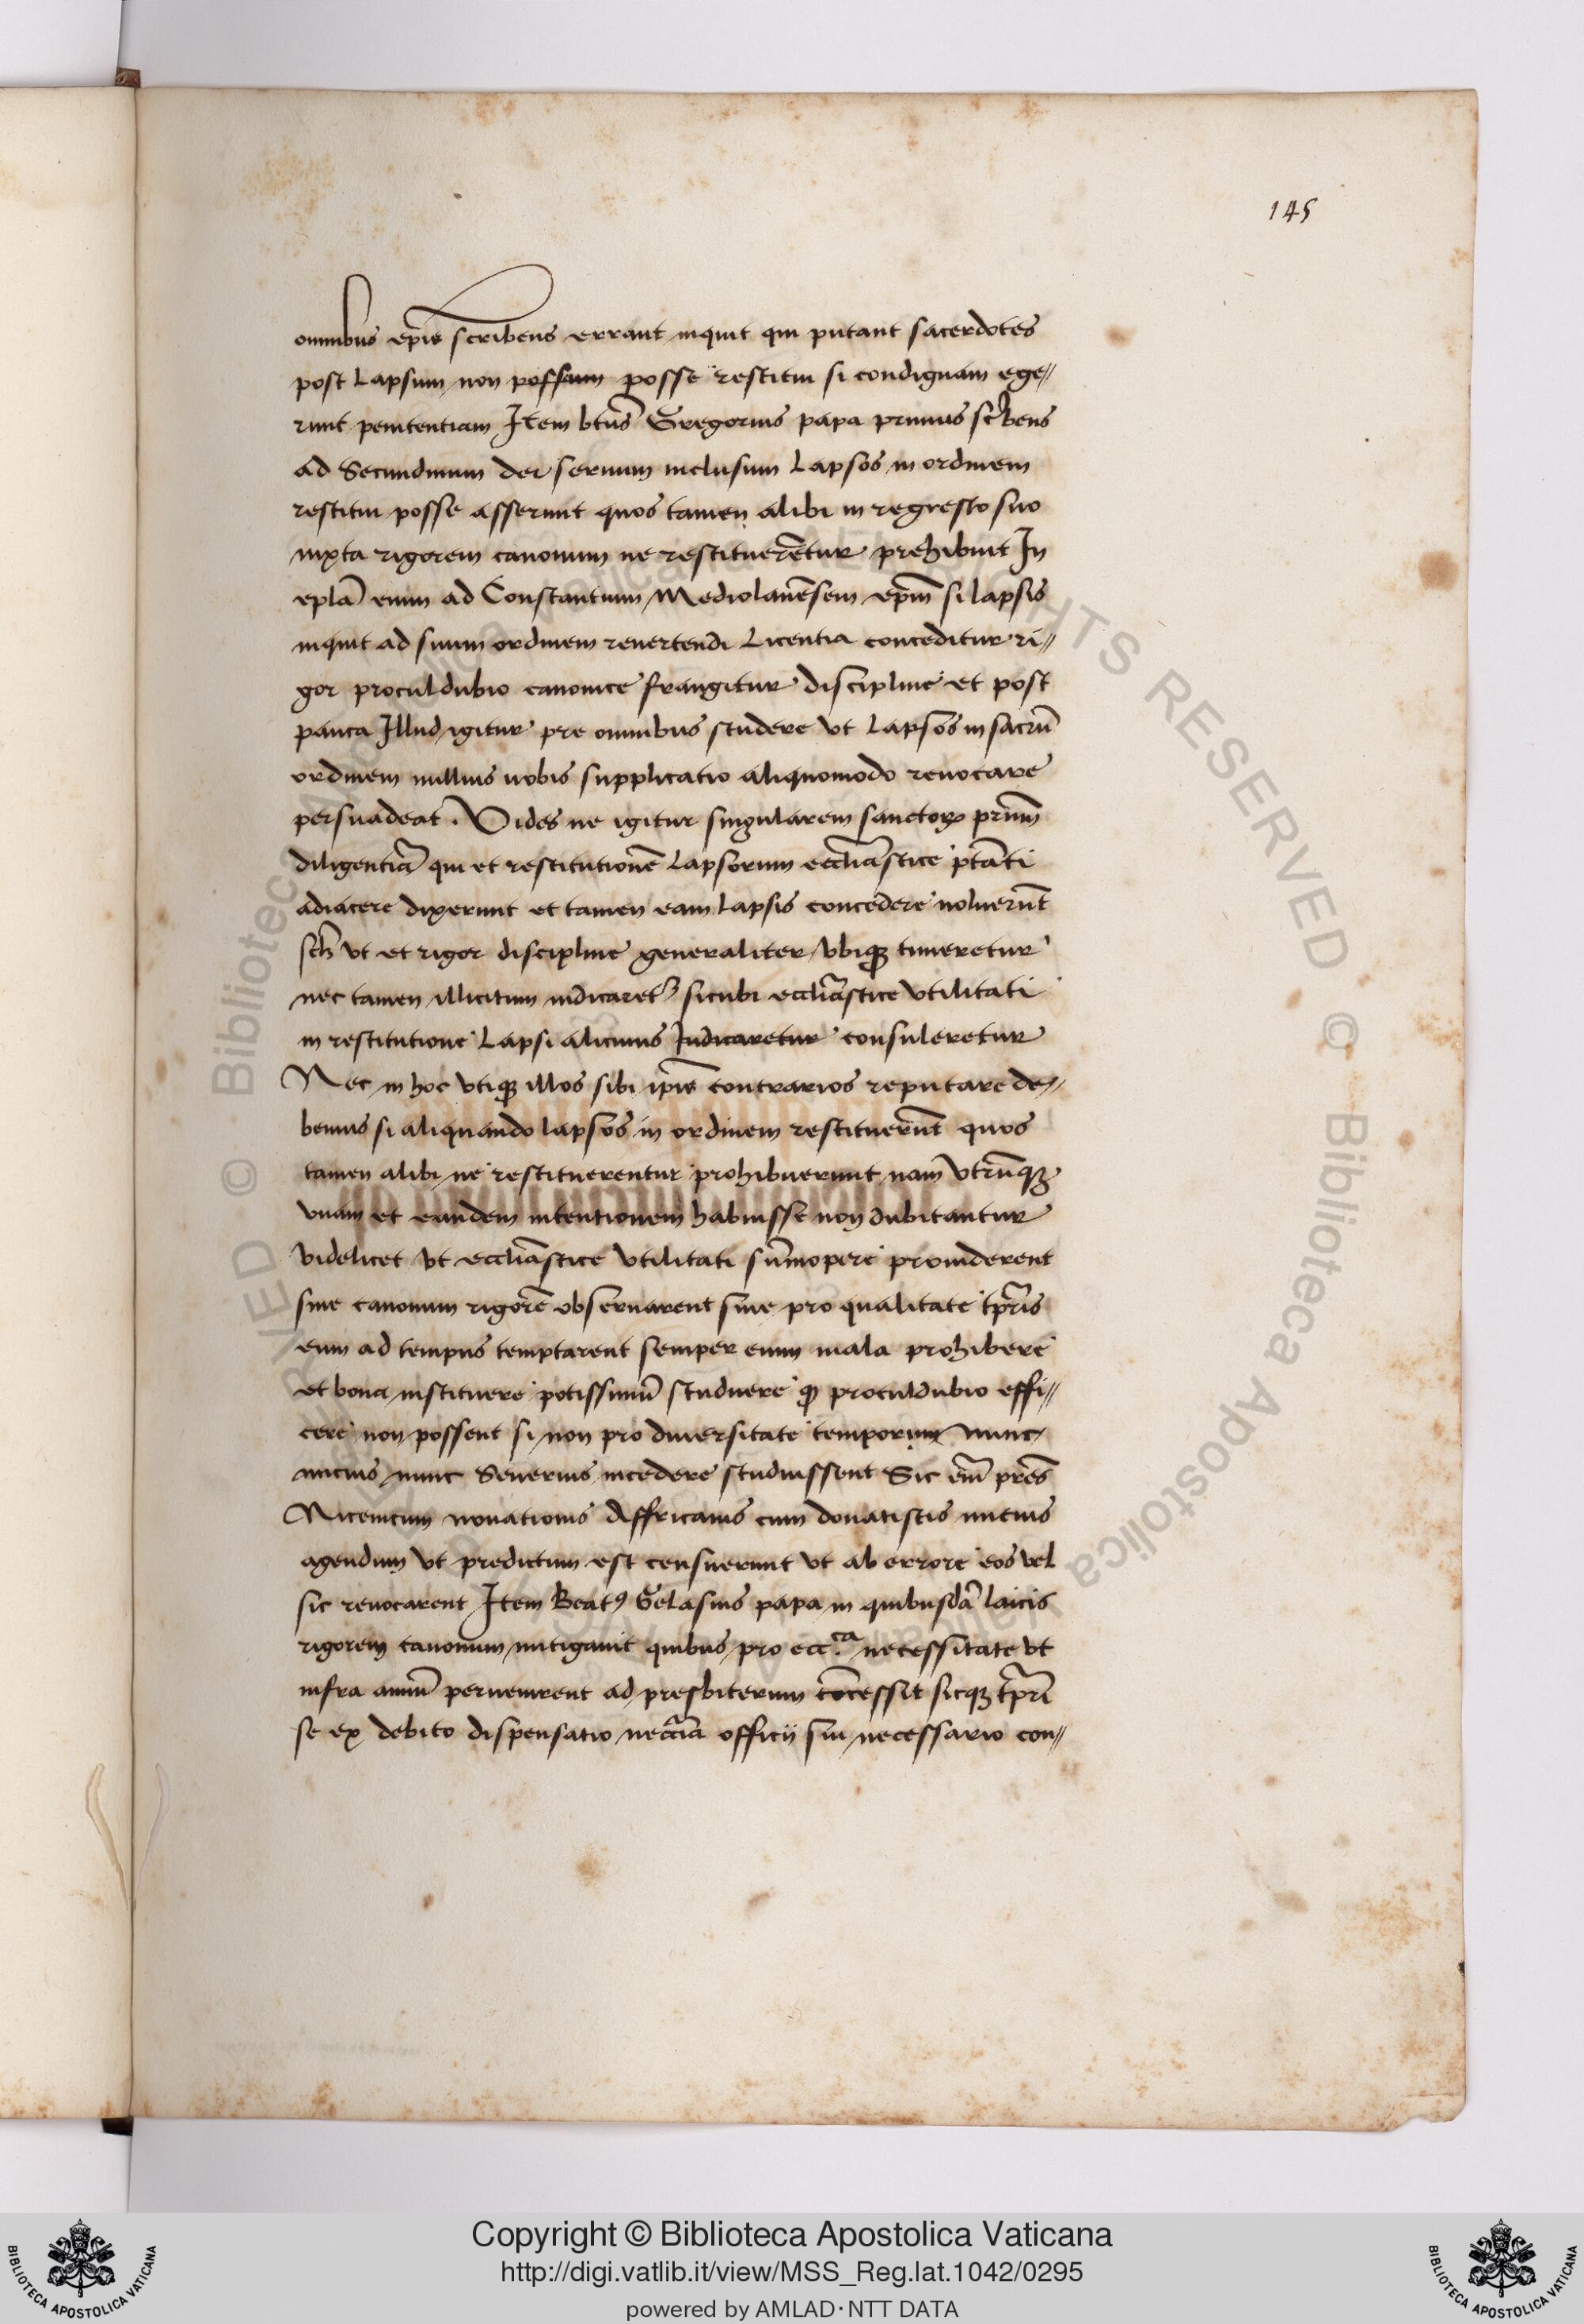 145
omnibus ep̄is scribens errant inquit qui putant sacerdotes
post Lapsum non possum posse restitui si condignam ege//
runt penitentiam Item bt̄us Gregorius papa primus sc̄bens
ad Secundinum dei seruum inclusum Lapsos in ordinem
restitui posse asserunt quos tamen alibi in regresto suo
iuxta rigorem canonum ne restituerētur prehibuit In
ep̄lā enim ad Constantium Mediolanēsem ep̄m si lapsis
inquit ad suum ordinem reuertendi Licentia conceditur ri//
gor proculdubio canonice frangitur discipline et post
pauca Illud igitur pre omnibus studere vt Lapsos in sacrū
ordinem nullius uobis supplicatio aliquomodo reuocare
persuadeat . Vides ne igitur singularem sanctoꝝ prūm
diligentiā qui et restitutionē Lapsorum eccliāstice ptāti
adiacere dixerunt et tamen eam lapsis concedere noluerūt
sch vt et rigor discipline generaliter vbiqꝫ timeretur
nec tamen illicitum iudicaret᷑ sicubi eccliāstice vtilitati
in restitutione Lapsi alicuius Iudicaretur consuleretur
Nec in hoc vtiqꝫ illos sibi ip̄is contrarios reputare de//
bemus si aliquando lapsos in ordinem restituerūt quos
tamen alibi ne restituerentur prohibuerunt nam vtrūqꝫ
vnam et eandem intentionem habuisse non dubitantur
videlicet vt eccliāstice vtilitati sūmopere prouiderent
siue canonum rigorē obseruarent siue pro qualitate tp̄ris
eum ad tempus temptarent semper enim mala prohibere
et bona instituere potissimū studuere qꝫ proculdubio effi//
cere non possent si non pro diuersitate temporum nunc
micius nunc Seuerius incedere studuissent Sic em̄ pr̄es
Nicenicum nouationis Affricanis cum donatistis micius
agendum vt predictum est censuerunt vt ab errore eos vel
sic reuocarent Item Beatꝰ Gelasius papa in quibusdā laicis
rigorem canonum mitigauit quibus pro ecc.ca necessitate vt
infra annū peruenirent ad presbiterium cōcessit sicqꝫ tp̄ri
se ex debito dispensatio neccīa officij sui necessario con//
Copyright © Biblioteca Apostolica Vaticana
http://digi.vatlib.it/view/MSS_Reg.lat.1042/0295
powered by AMLAD·NTT DATA
BIBLIOTECA APOSTOLICA VATICANA
BIBLIOTECA APOSTOLICA VATICANA